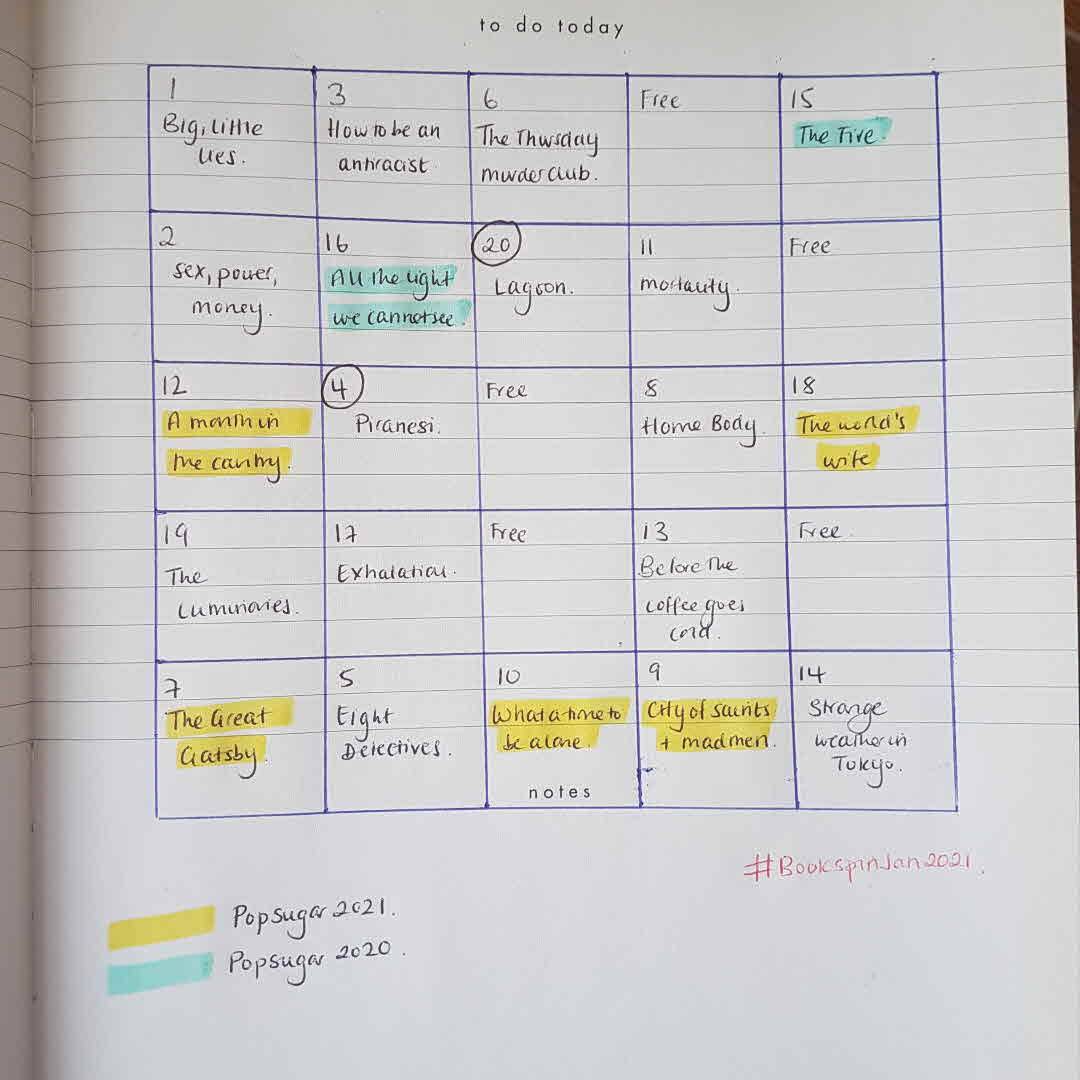 to do today
1
Big, little
lies.
3
How to be an
antiracist.
6
The Thursday
murder club.
Free
15
The Five.
2
sex, power,
money.
16
All the light
we cannot see.
20
Lagoon.
11
mortality.
Free
12
A month in
the country.
4
Piranesi.
Free
8
Home Body.
18
The world's
wife
19
The
Luminaries.
17
Exhalation.
Free
13
Before the
coffee goes
cold.
Free
7
The Great
Gatsby.
5
Eight
Detectives.
10
What a time to
be alone.
9
City of saints
+ madmen.
14
Strange
weather in
Tokyo.
notes
#BookspinJan2021.
Popsugar 2021.
Popsugar 2020.